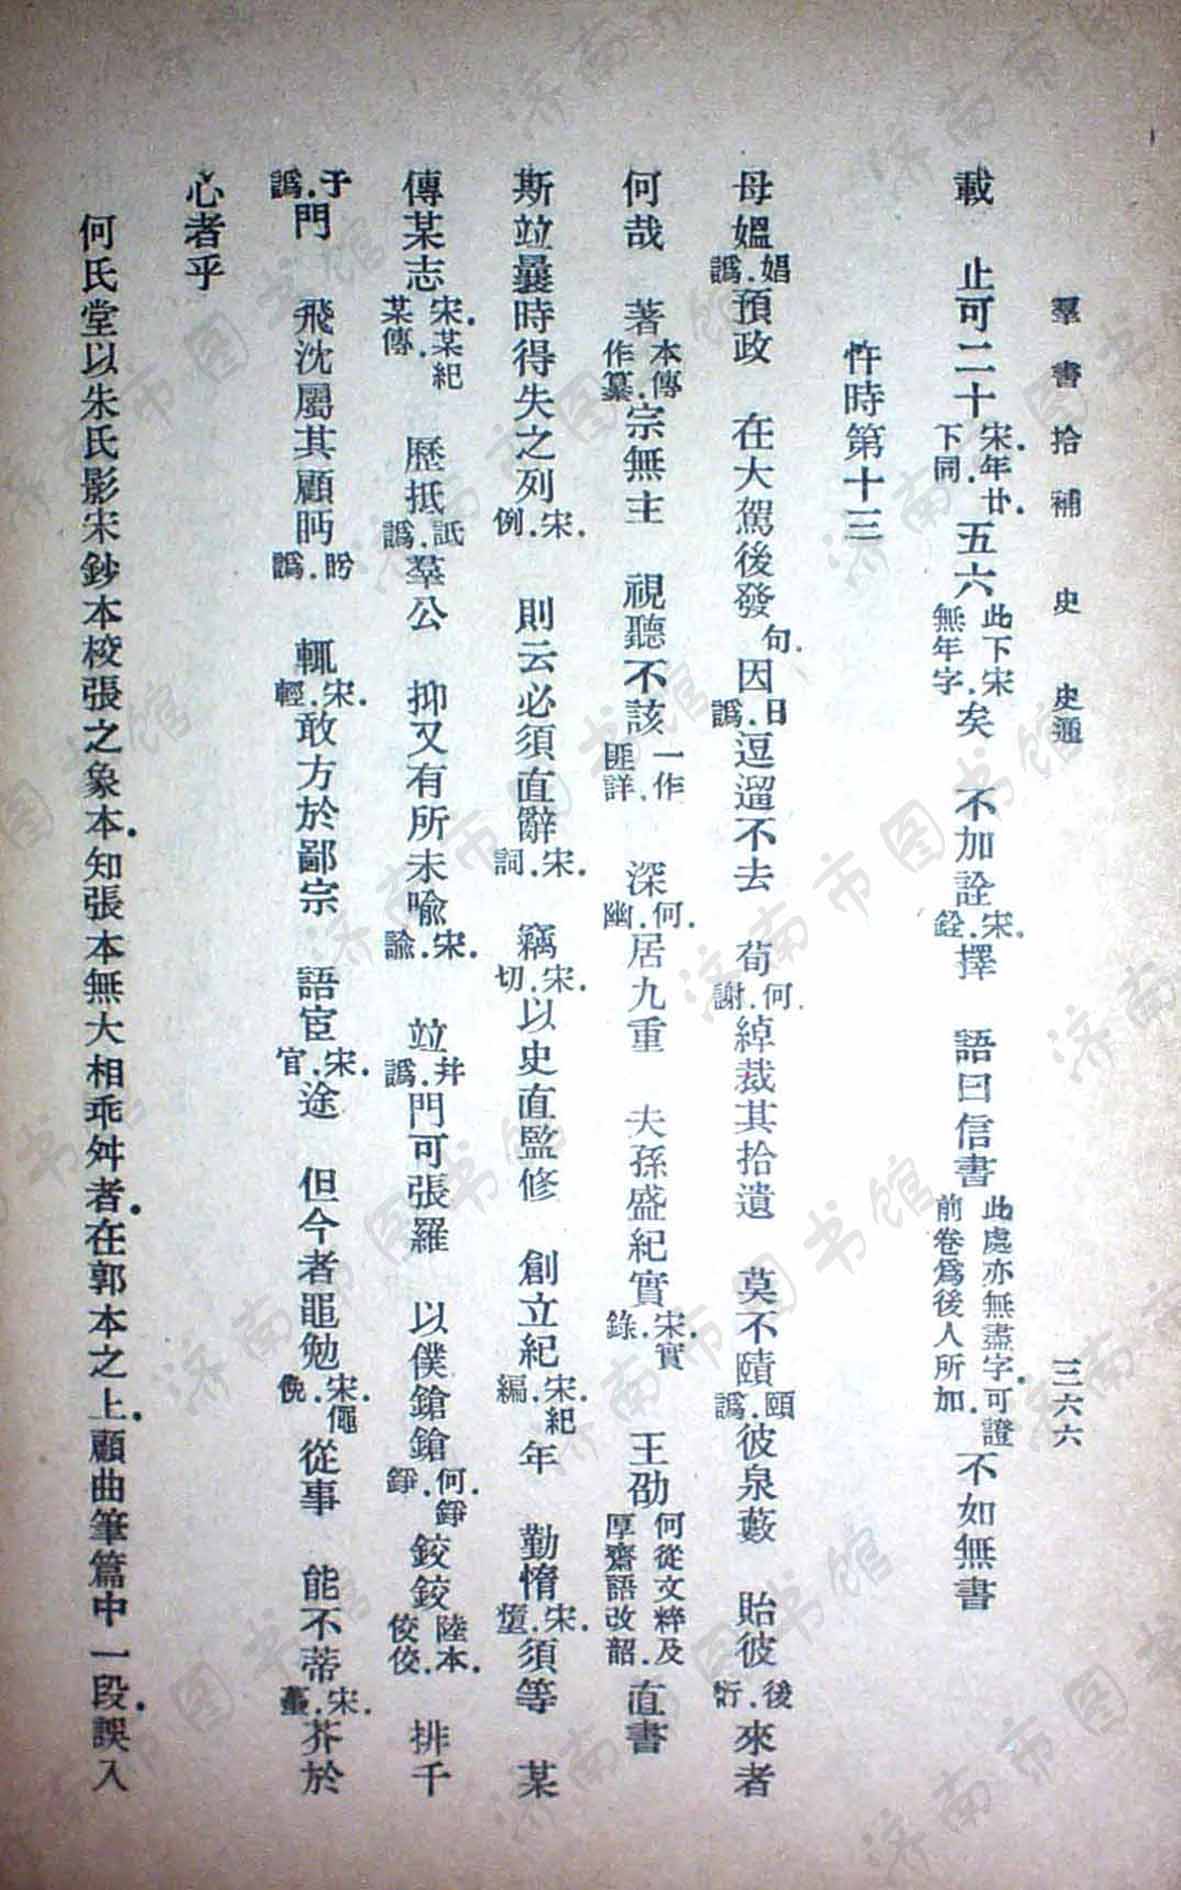 羣書拾補 史 史通 三六六
載 止可二十宋.年廿.下同.五六此下宋無年字.矣 不加詮宋.銓.擇 語曰信書此處亦無盡字.可證前卷爲後人所加.不如無書
忤時第十三
母媼娼.譌.預政 在大駕後發句.因日.譌.逗遛不去 荀何.謝.綽裁其拾遺 莫不賾頤.譌.彼泉藪 貽彼後.衍.來者
何哉 著本傳作纂.宗無主 視聽不該一作匪詳. 深何.幽.居九重 夫孫盛紀實宋.實錄. 王劭何從文粹及厚齋語改韶.直書
斯竝曩時得失之列宋.例. 則云必須直辭宋.詞. 竊宋.切.以史直監修 創立紀宋.紀編.年 勤惰宋.墮.須等 某
傳某志宋.某紀某傳. 歷抵詆.譌.羣公 抑又有所未喻宋.諭. 竝幷.譌.門可張羅 以僕鎗鎗何.錚錚.鉸鉸陸本.佼佼. 排千
于.譌.門 飛沈屬其顧眄盻.譌. 輒宋.輕.敢方於鄙宗 語宦宋.官.途 但今者黽勉宋.僶俛.從事 能不蒂宋.蔕.芥於
心者乎
何氏堂以朱氏影宋鈔本校張之象本.知張本無大相乖舛者.在郭本之上.顧曲筆篇中一段.誤入